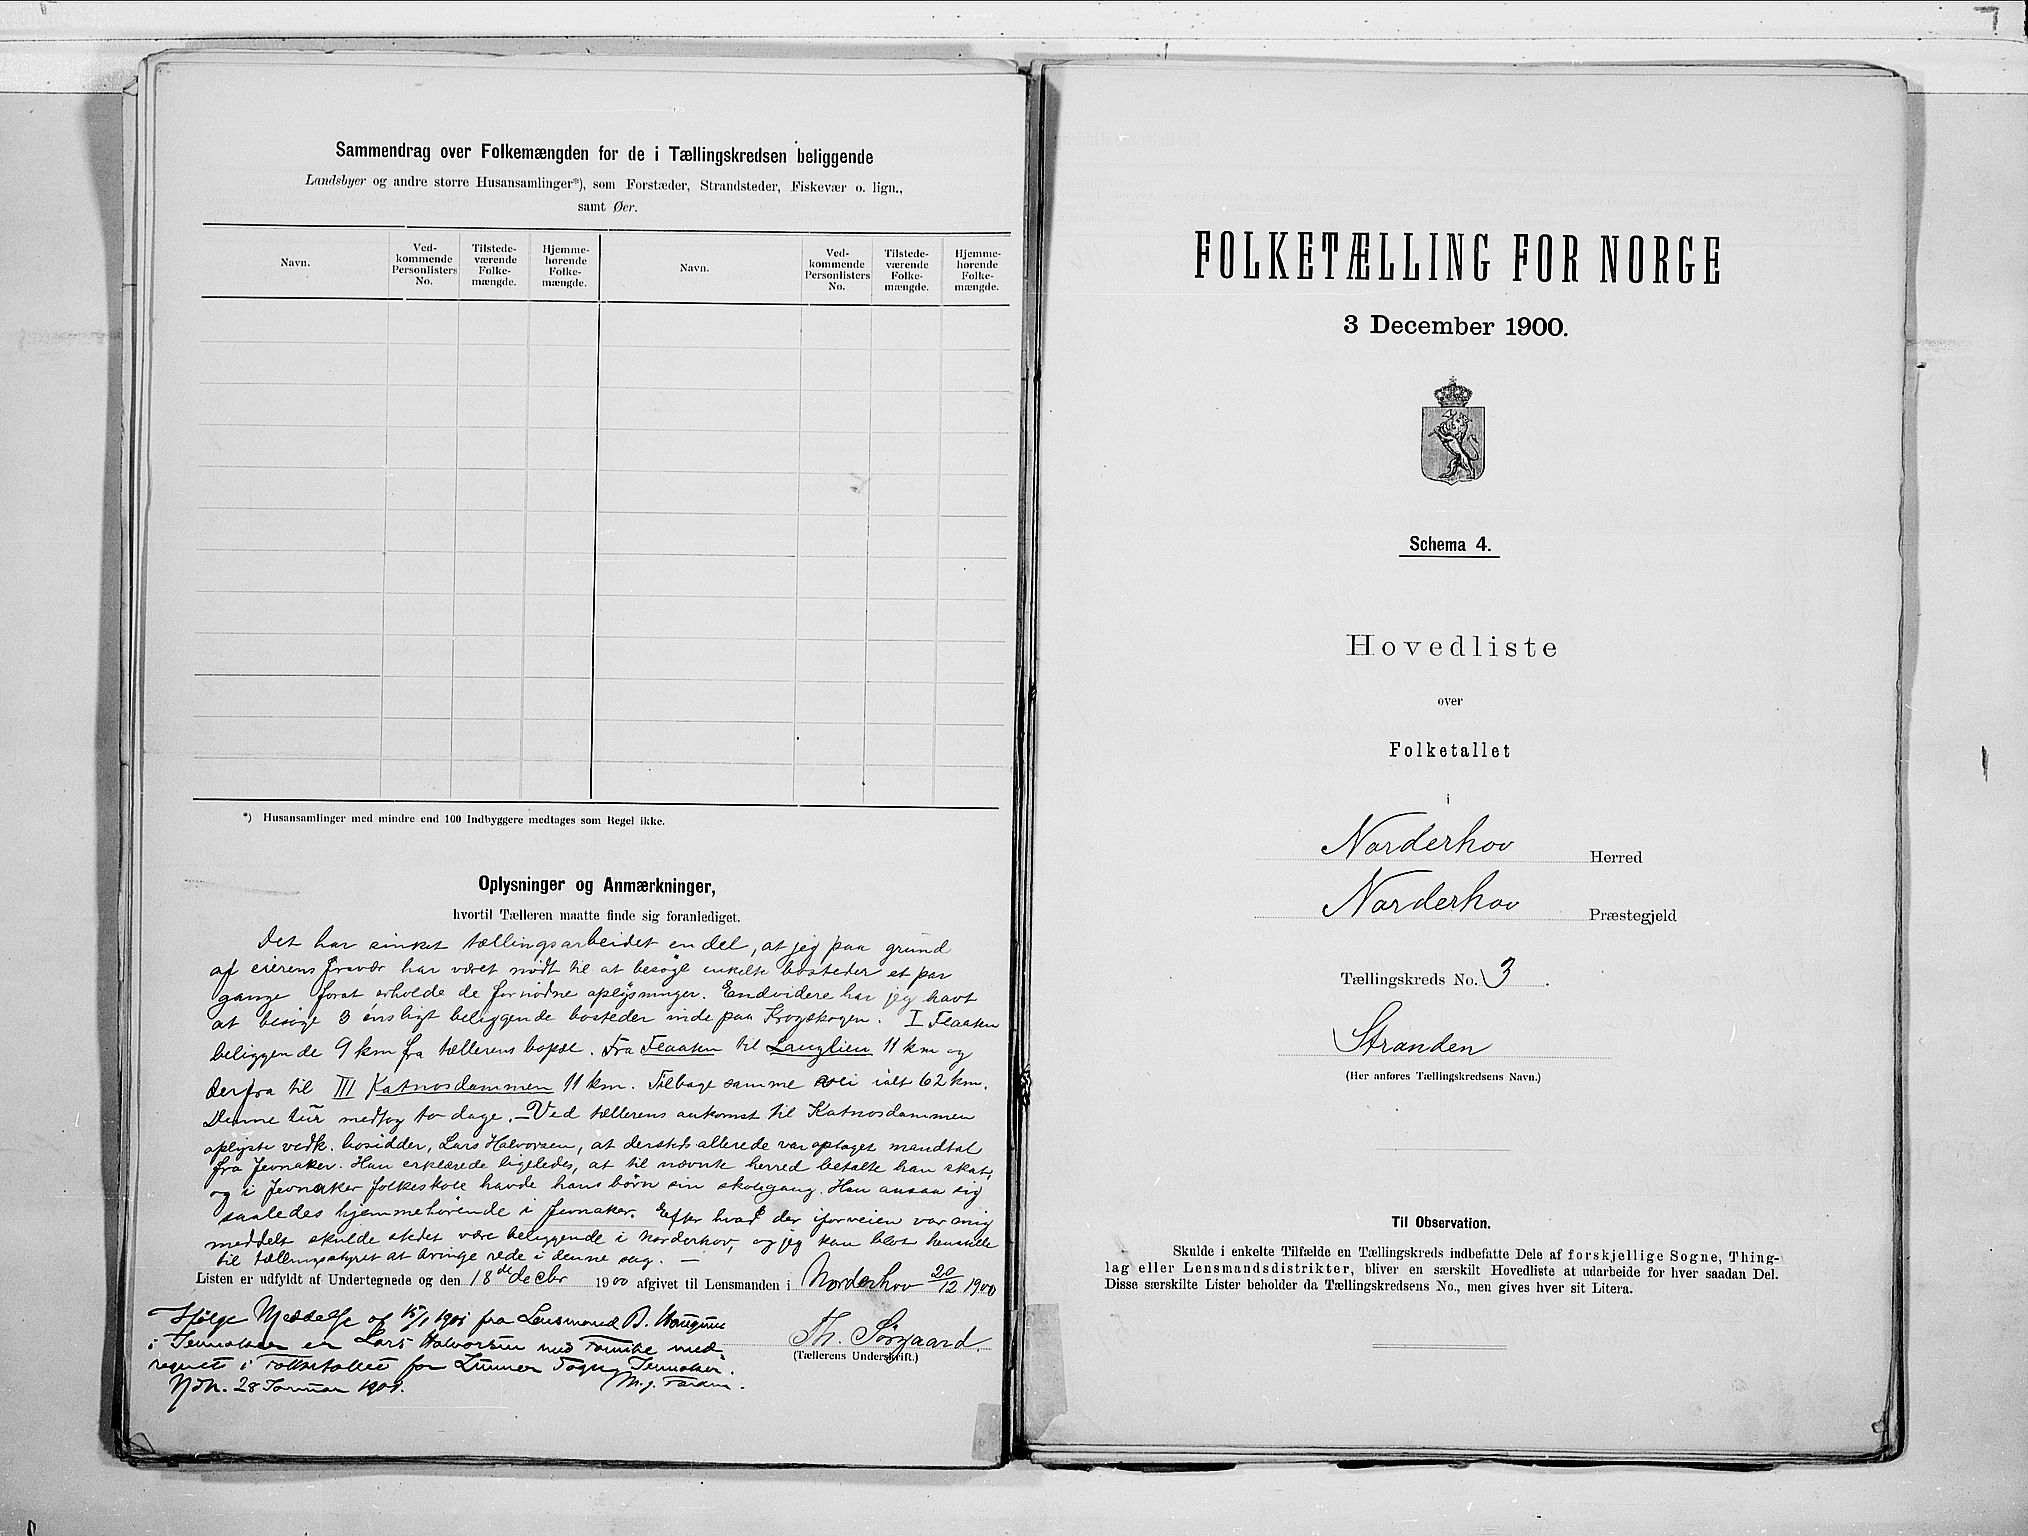 Sammendrag over Folkemængden for de i Tællingskredsen beliggende
Landsbyer og andre større Husansamlinger*), som Forstæder, Strandsteder, Fiskevær o. lign.,
samt Øer.
Navn. Ved-kommende Personlisters No. Tilstede-værende Folke-mængde. Hjemme-hørende Folke-mængde. Navn. Ved-kommende Personlisters No. Tilstede-værende Folke-mængde. Hjemme-hørende Folke-mængde.
*) Husansamlinger med mindre end 100 Indbyggere medtages som Regel ikke.
Oplysninger og Anmærkninger,
hvortil Tælleren maatte finde sig foranlediget.
Det har sinket tællingsarbeidet en del, at jeg paa grund
af eierens fravær har været nødt til at besøge enkelte bosteder et par
gange forat erholde de fornødne oplysninger. Endvidere har jeg havt
at besøge 3 ensligt beliggende bosteder inde paa Krogskogen. I Flaaten
beliggende 9 km fra tællerens bopæl. Fra Flaaten til Langlien 11 km og
derfra til III Katnosdammen 11 km. Tilbage samme vei ialt 62 km.
Denne tur medtog to dage. – Ved tællerens ankomst til Katnosdammen
oplyste vedk. bosidder, Lars Halvorsen, at dersteds allerede var optaget mandtal
fra Jevnaker. Han erklærede ligeledes, at til nævnte herred betalte han skat,
og i Jevnaker folkeskole havde hans børn sin skolegang. Han ansaa sig
saaledes hjemmehørende i Jevnaker. Efter hvad der iforveien var mig
meddelt skulde stedet være beliggende i Norderhov, og jeg kan blot henstille
til tællingsstyret at bringe rede i denne sag. –
Listen er udfyldt af Undertegnede og den 18de decbr 1900 afgivet til Lensmanden i Norderhov 20/12 1900
Ifølge Meddelse af 15/1 1901 fra Lensmand B. 
i Jevnaker er Lars Halvorsen med Familie med-
regnet i Folketallet for Lunner Sogn, Jevnaker.
Ndh. 28 Januar 1901.
Th. Sørgaard.
(Tællerens Underskrift.)
FOLKETÆLLING FOR NORGE
3 December 1900.
Schema 4.
Hovedliste
over
Folketallet
i
Norderhov Herred
Norderhov Præstegjeld
Tællingskreds No. 3.
Stranden
(Her anføres Tællingskredsens Navn.)
Til Observation.
Skulde i enkelte Tilfælde en Tællingskreds indbefatte Dele af forskjellige Sogne, Thing-
lag eller Lensmandsdistrikter, bliver en særskilt Hovedliste at udarbeide for hver saadan Del.
Disse særskilte Lister beholder da Tællingskredsens No., men gives hver sit Litera.